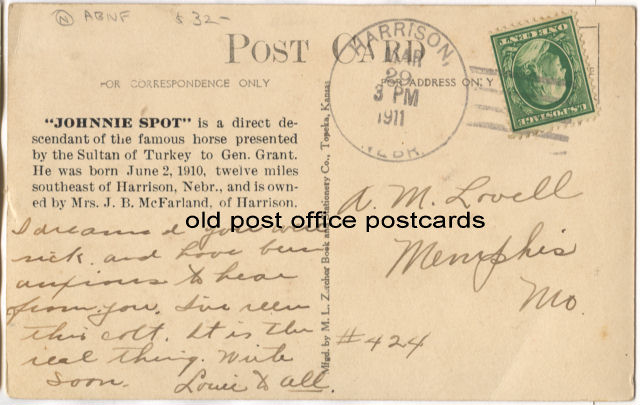 N ABNF $32-
POST CARD
FOR CORRESPONDENCE ONLY
FOR ADDRESS ONLY
HARRISON,
MAR
29
3 PM
1911
NEBR.
U.S. POSTAGE
"JOHNNIE SPOT" is a direct de-
scendant of the famous horse presented
by the Sultan of Turkey to Gen. Grant.
He was born June 2, 1910, twelve miles
southeast of Harrison, Nebr., and is own-
ed by Mrs. J. B. McFarland, of Harrison.
old post office postcards
I dreamed you were
sick and have been
anxious to hear
from you. I've seen
this colt. It is the
real thing. Write
soon. Love to all.
Mfgd. by M. L. Zercher Book and Stationery Co., Topeka, Kansas
A. M. Lovell
Memphis
Mo.
#424